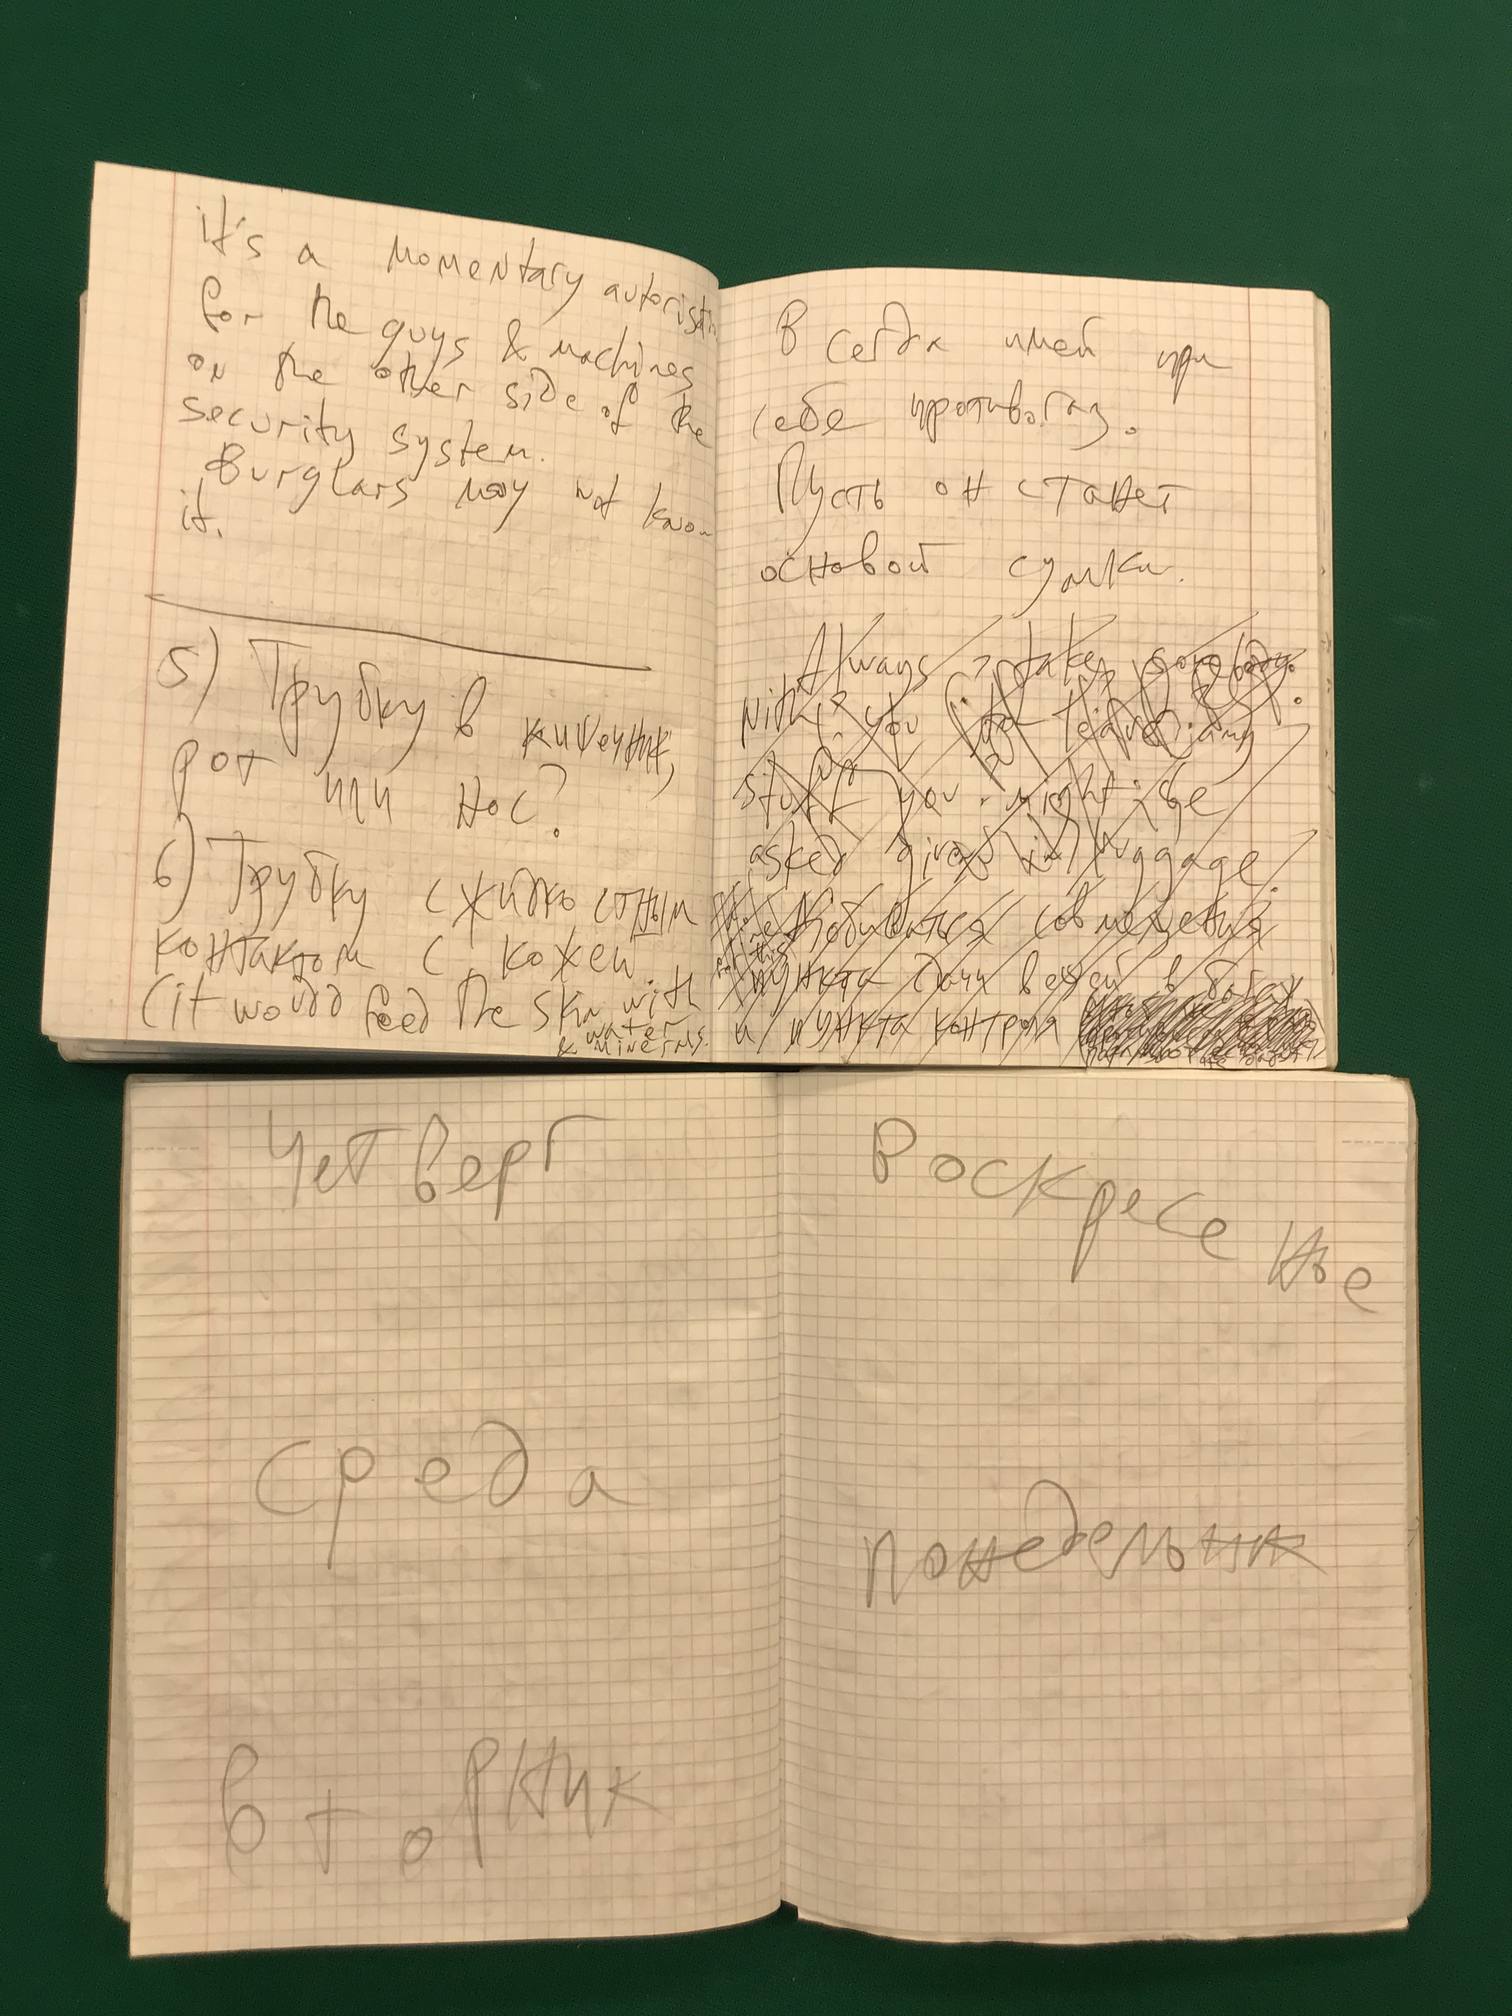 it's a momentary
for the guys & machines
on the other side of the
security system.
Burglars may not know
it.
5) Трубку в кишечник,
рот или нос?
6) Трубку с жидкостным
контактом с кожей
(it would feed the skin with
water
& minerals.
Всегда имей при
себе противогаз.
Пусть он станет
основой сумки.
Always take somebody
with you
stuff you might be
asked in luggage.
совмещения
пункта сдачи вещей в багаж
и пункта контроля
Четверг
среда
вторник
Воскресенье
понедельник